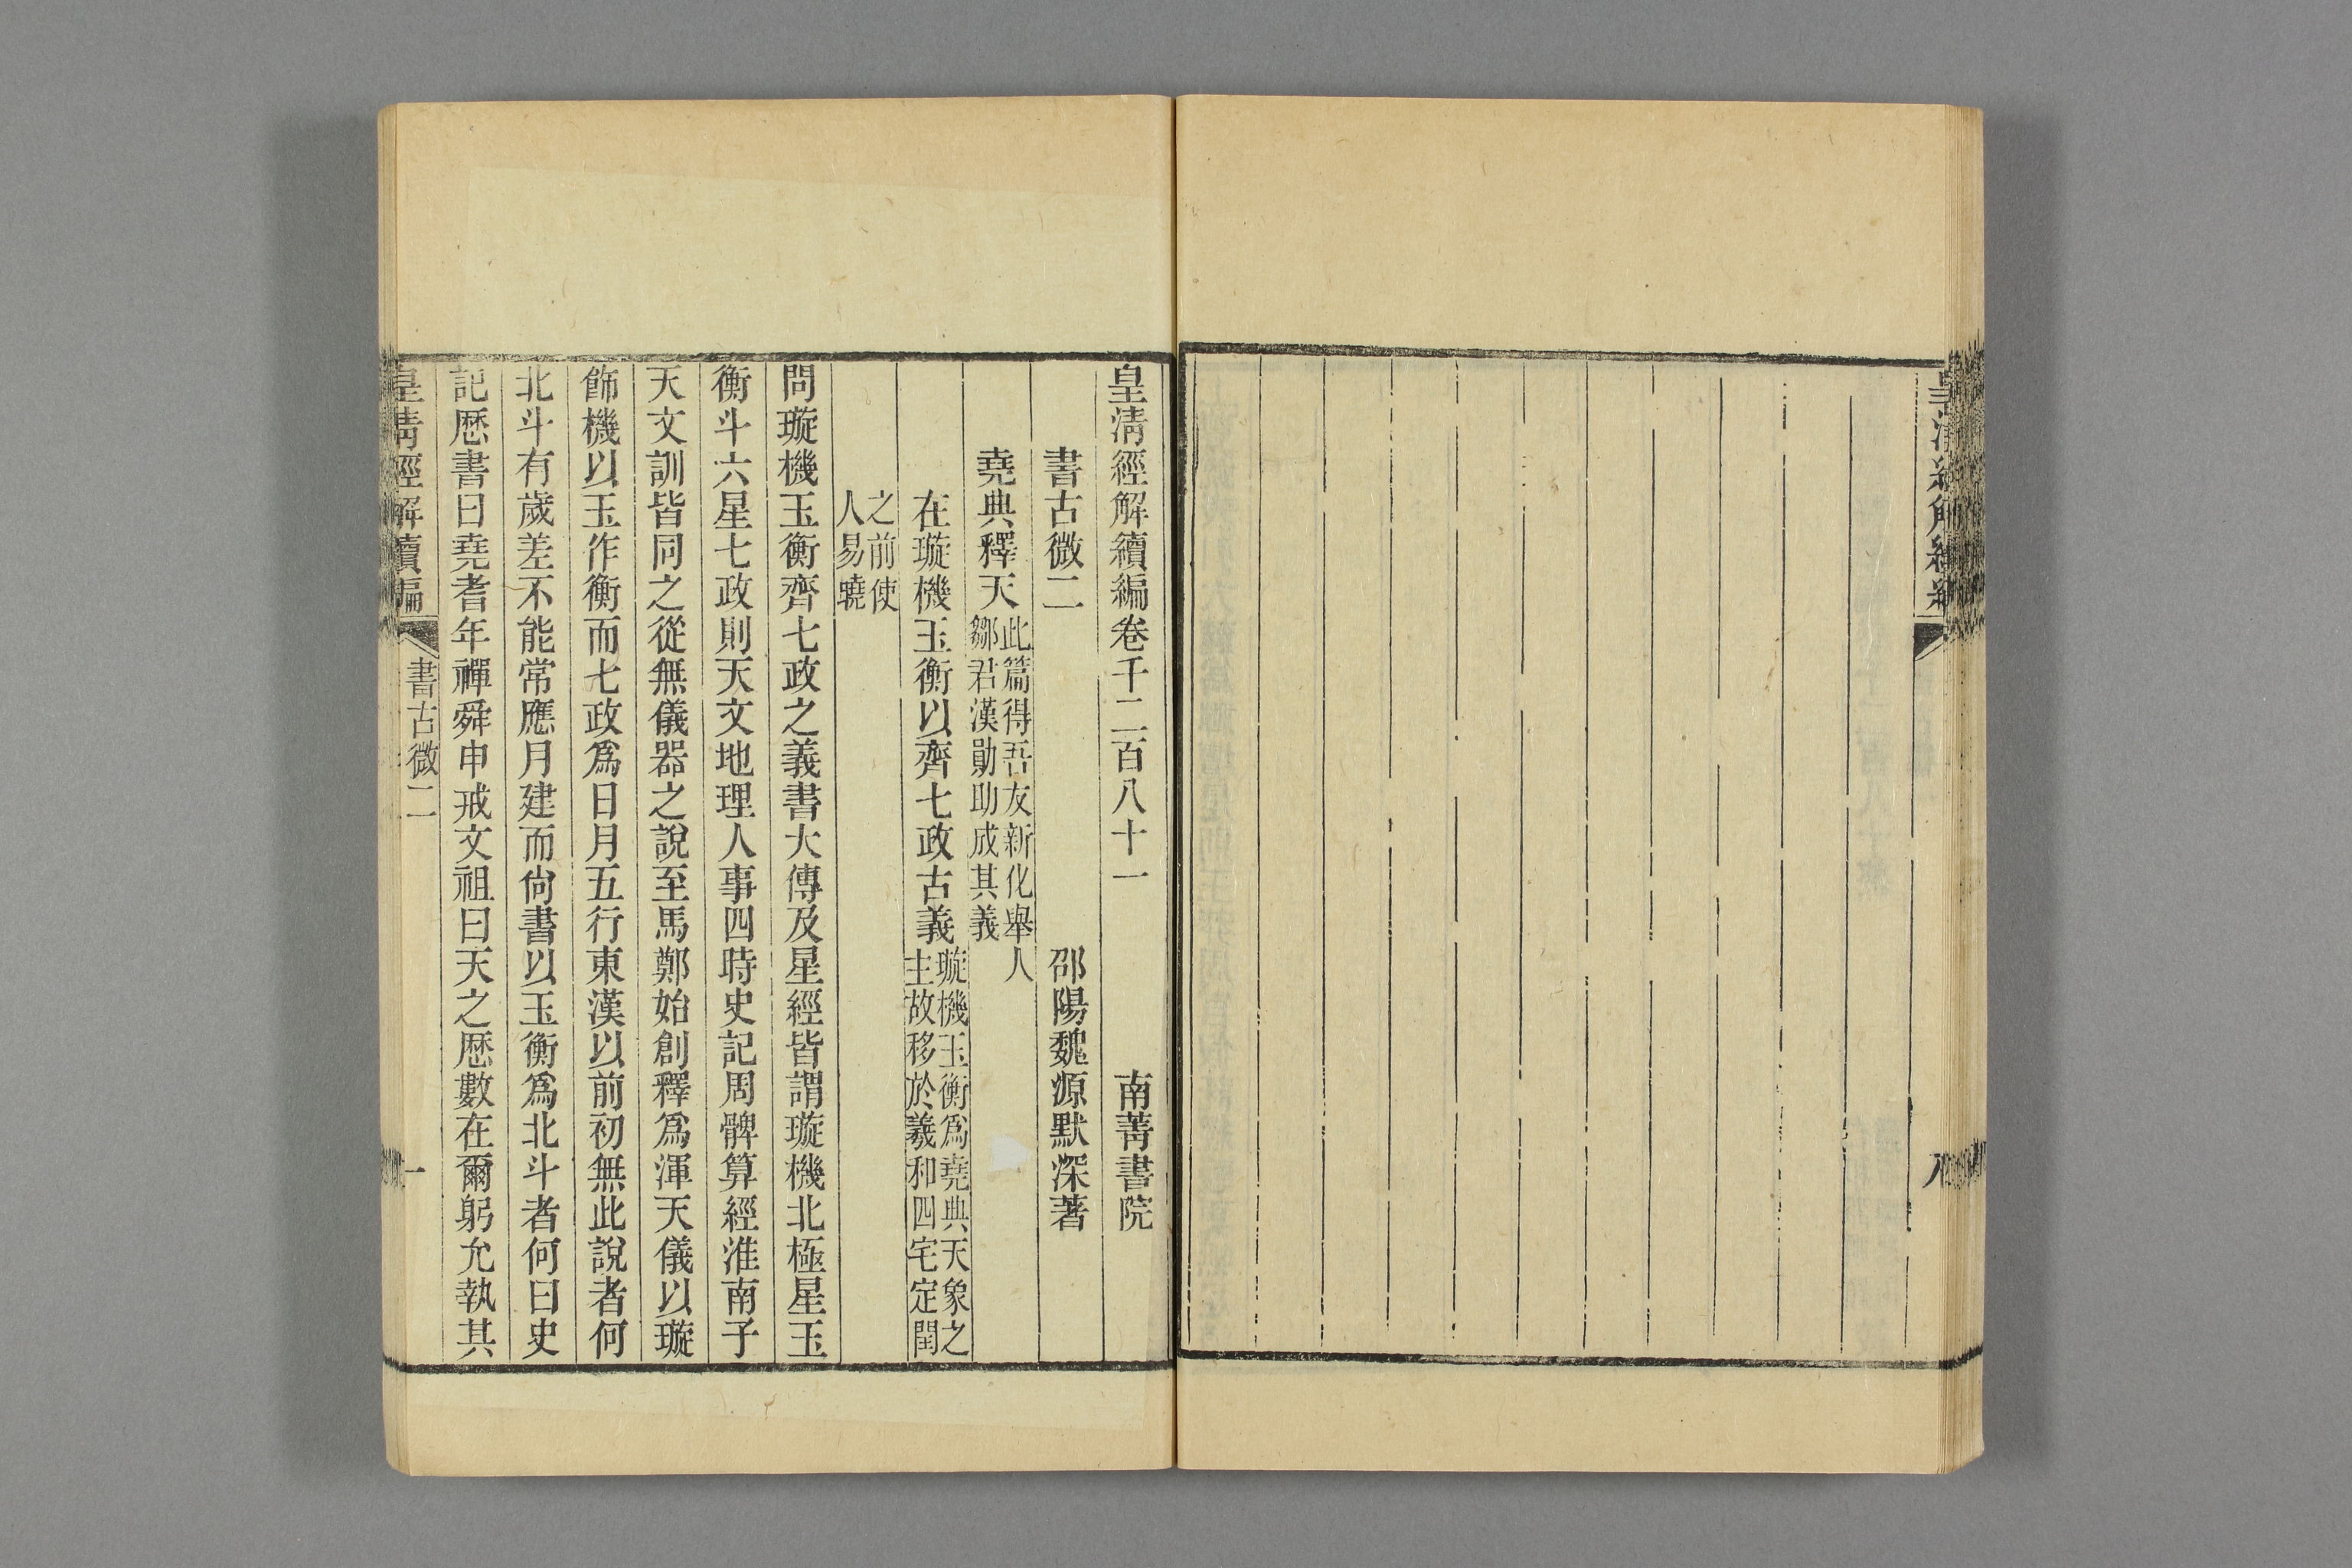 皇清經解續編
八
皇清經解續編卷千二百八十一　南菁書院
書古微二　邵陽魏源默深著
堯典釋天
此篇得吾友新化舉人
鄒君漢勛助成其義
在璇機玉衡以齊七政古義
璇機玉衡爲堯典天象之
主故移於羲和四宅定閏
之前使
人易曉
問璇機玉衡齊七政之義書大傳及星經皆謂璇機北極星玉
衡斗六星七政則天文地理人事四時史記周髀算經淮南子
天文訓皆同之從無儀器之說至馬鄭始創釋爲渾天儀以璇
飾機以玉作衡而七政爲日月五行東漢以前初無此說者何
北斗有歲差不能常應月建而尙書以玉衡爲北斗者何曰史
記歷書曰堯耆年禪舜申戒文祖曰天之歷數在爾躬允執其
皇清經解續編　書古微二　一